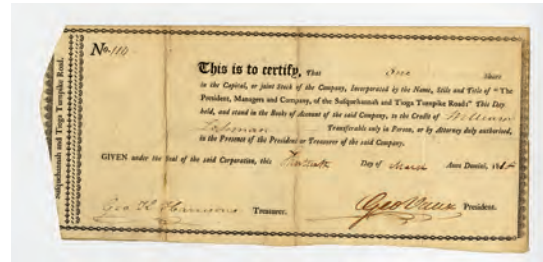 Susquehannah and Tioga Turnpike Road.
No. 110
This is to certify, That One Share
in the Capital, or joint Stock of the Company, Incorporated by the Name, Stile and Title of "The
President, Managers and Company, of the Susquehannah and Tioga Turnpike Roads" This Day
held, and stand in the Books of Account of the said Company, to the Credit of William
Lehman Transferable only in Person, or by Attorney duly authorised,
in the Presence of the President or Treasurer of the said Company.
GIVEN under the Seal of the said Corporation, this Day of March Anno Domini, 181
Geo Harrison Treasurer. Geo Vaux President.